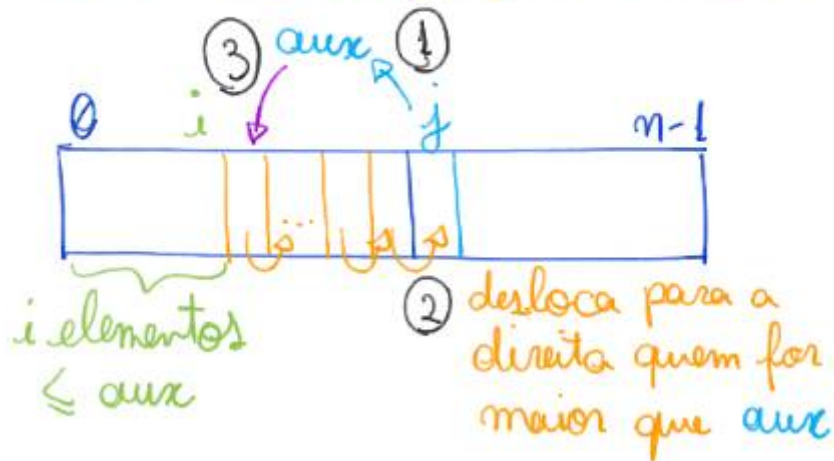 3 aux 1
0 i j n-1
...
i elementos
≤ aux
2 desloca para a
direita quem for
maior que aux